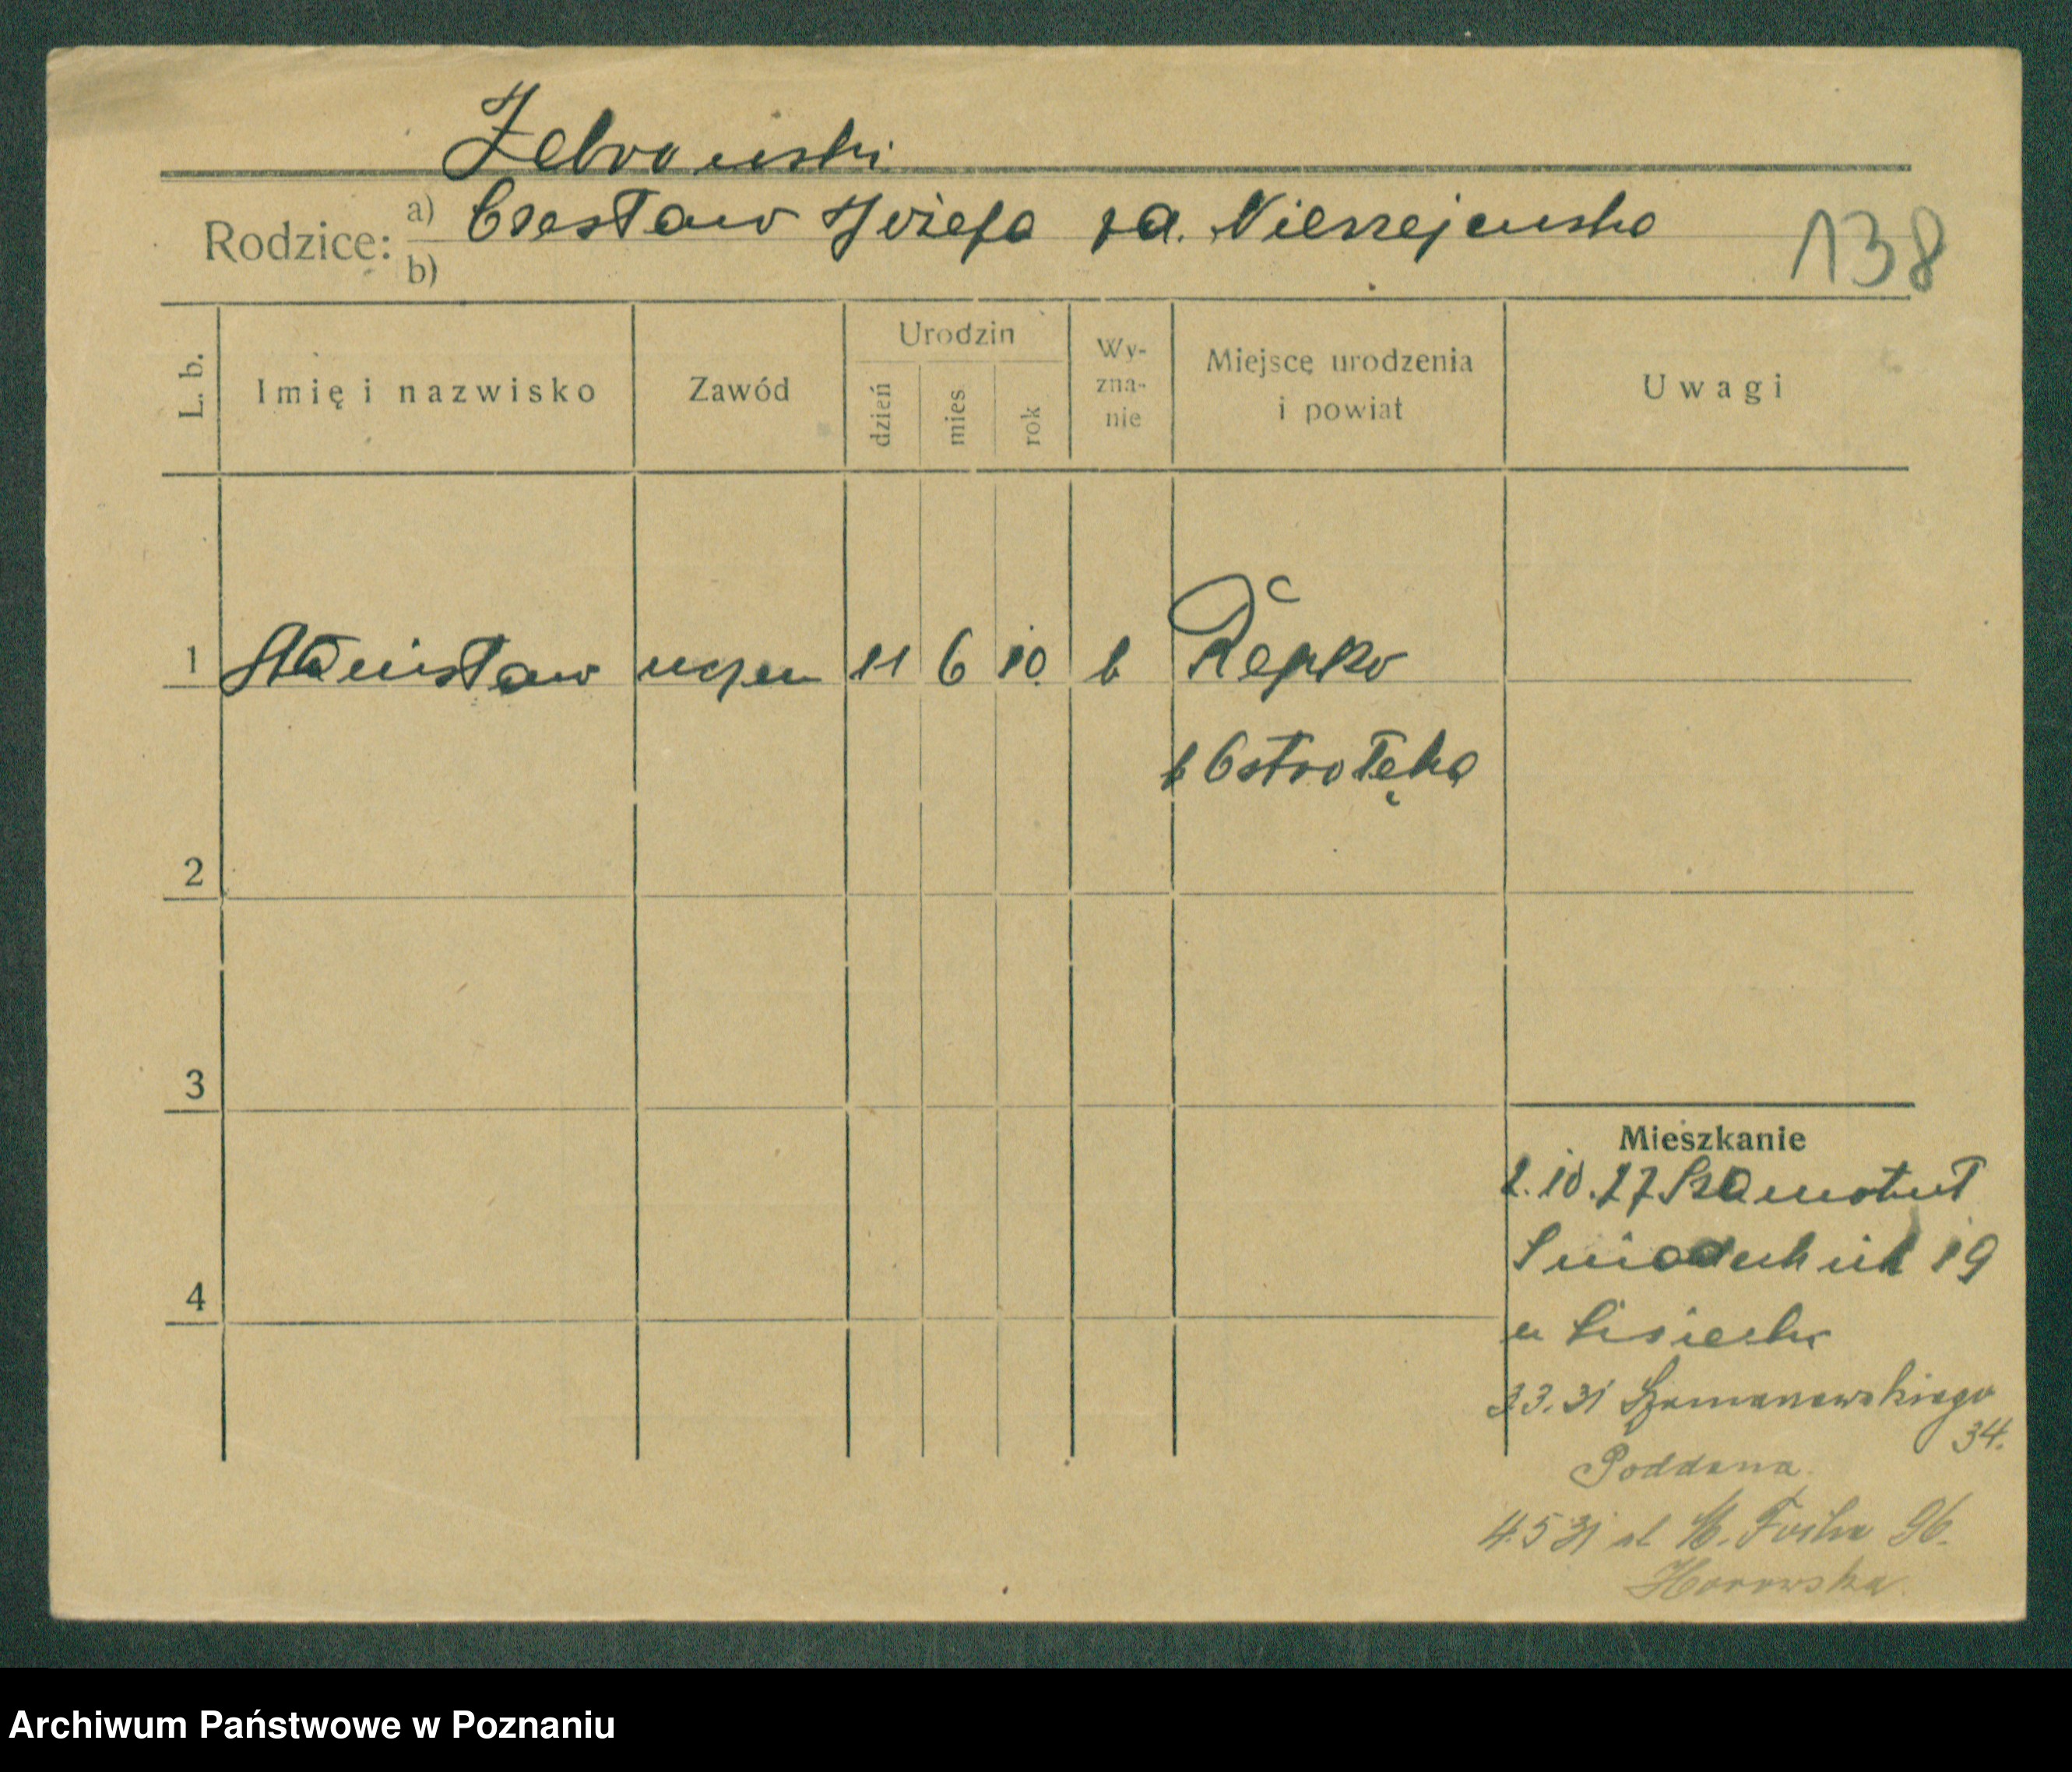 Żebrowski
Rodzice: a) Czesław Józefa za. Nieszejewska
b)
138
L. b.
Imię i nazwisko
Zawód
Urodzin
dzień
mies
rok
Wy-
zna-
nie
Miejsce urodzenia
i powiat
Uwagi
1 Stanisław uczeń 11 6 10 k
p Ostrołęka
2
3
4
Mieszkanie
2.10.27 Szamotuł
Śniadeckich 19
u
3.3.31 Szymanowskiego
34.
Poddana
4.5 31 M. Focha 96.
Archiwum Państwowe w Poznaniu